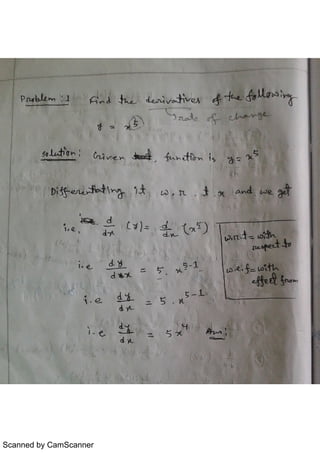 Problem :1 Find the derivatives of the following
rate of change
y = x^5
solution: Given function is y = x^5
Differentiating it w.r.t. x and we get
i.e. d/dx (y) = d/dx (x^5)
w.r.t = with respect to
i.e dy/dx = 5. x^5-1
w.e.f = with effect from
i.e dy/dx = 5 . x^5-1
i.e dy/dx = 5x^4 Ans:
Scanned by CamScanner